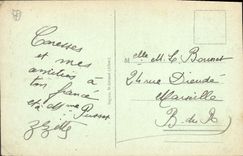 Caresses
et mes
amitiés à
ton fiancé
et à Mme
Melle M. L. Bonnet
24 rue Dieudé
Marseille
B. du R